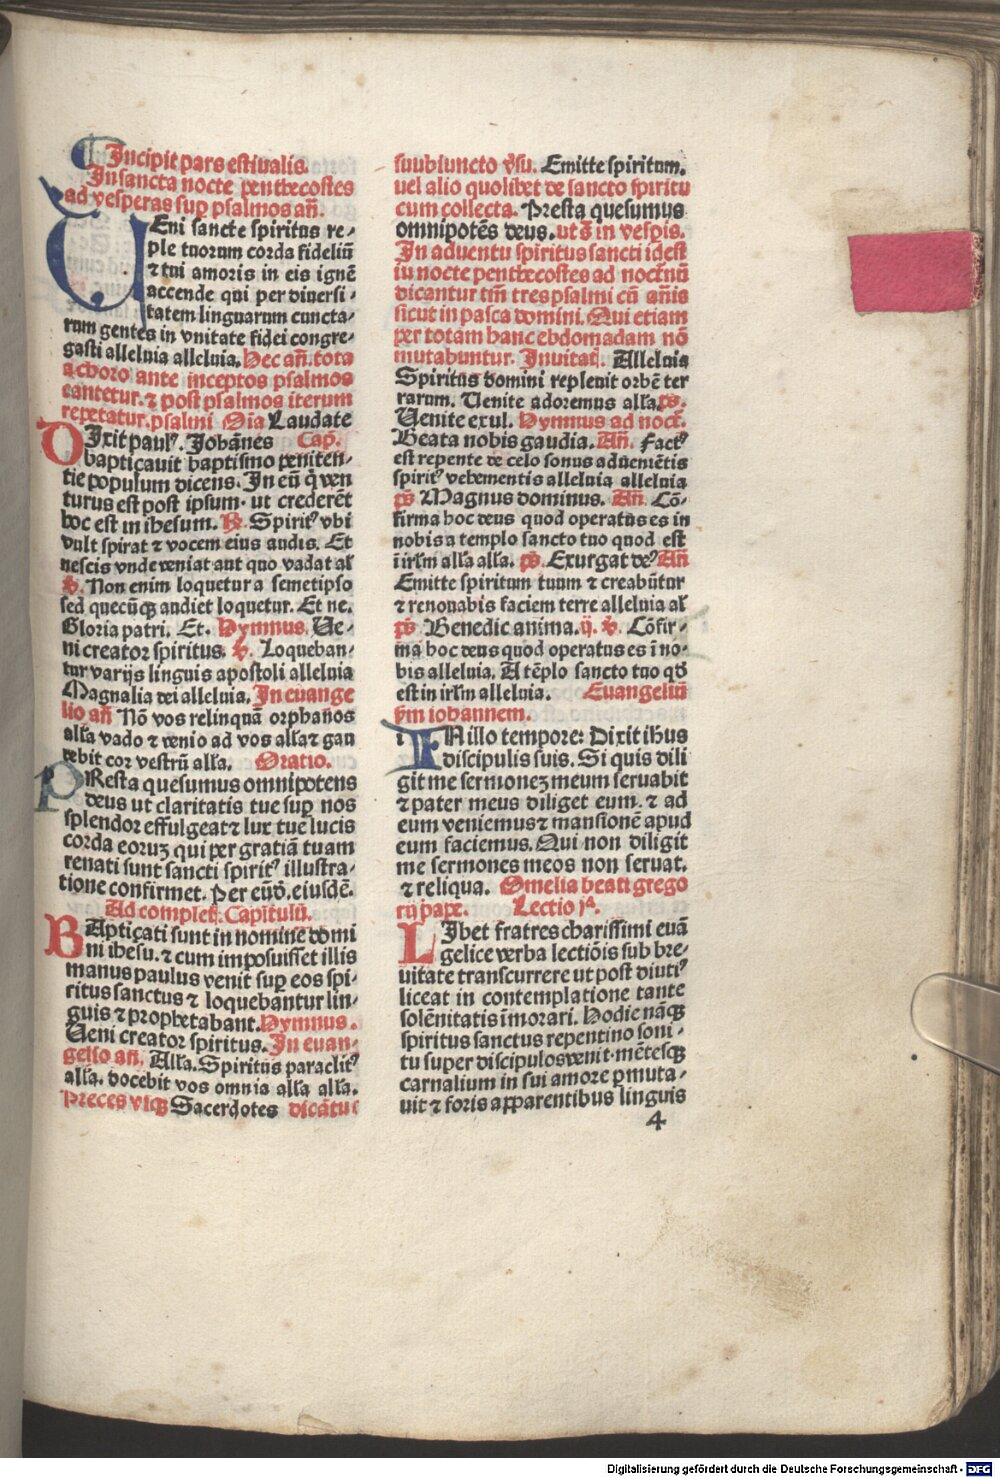 Incipit pars estiualis.
In sancta nocte penthecostes
ad vesperas suꝑ psalmos añ.
VEni sancte spiritus re-
ple tuorum corda fideliū
⁊ tui amoris in eis ignē
accende qui per diuersi-
tatem linguarum cuncta-
rum gentes in vnitate fidei congre-
gasti alleluia alleluia. Hec añ. tota
a choro ante inceptos psalmos
cantetur. ⁊ post psalmos iterum
repetatur. psalmi Oīa Laudate
DIxit paulꝰ. Johānes Cap̄.
bapticauit baptismo peniten-
tie populum dicens. In eū q̇ ven
turus est post ipsum · ut crederēt
hoc est in ihesum. ℟. Spiritꝰ vbi
vult spirat ⁊ vocem eius audis. Et
nescis vnde veniat aut quo vadat al̄
℣. Non enim loquetur a semetipso
sed quecūqꝫ audiet loquetur. Et ne.
Gloria patri. Et. Hymnus. Ve-
ni creator spiritus. ℣. Loqueban-
tur varijs linguis apostoli alleluia
Magnalia dei alleluia. In euange
lio añ Nō vos relinquā orphanos
alł̓a vado ⁊ venio ad vos alł̓a ⁊ gau
debit cor vestrū alł̓a. Oratio.
PResta quesumus omnipotens
deus ut claritatis tue suꝑ nos
splendor effulgeat ⁊ lux tue lucis
corda eoruꝫ qui per gratiā tuam
renati sunt sancti spiritꝰ illustra-
tione confirmet. Per eūd̄. eiusdē.
Ad complet̄. Capitulū.
BApticati sunt in nomine domi
ni ihesu. ⁊ cum imposuisset illis
manus paulus venit suꝑ eos spi-
ritus sanctus ⁊ loquebantur lin-
guis ⁊ prophetabant. Hymnus.
Veni creator spiritus. In euan-
gelio añ. Alł̓a. Spiritus paraclitꝰ
alł̓a. docebit vos omnia alł̓a alł̓a.
Preces Sacerdotes dicātur
suubiuncto v̓su. Emitte spiritum.
uel alio quolibet de sancto spiritu
cum collecta. Presta quesumus
omnipotēs deus. ut ꝫ in vesꝑis.
In aduentu spiritus sancti idest
iu nocte penthecostes ad noct̓nū
dicantur tm̄ tres psalmi cū añis
sicut in pasca domini. Qui etiam
per totam hanc ebdomadam nō
mutabuntur. Inuitat̄. Alleluia
Spiritus domini repleuit orbē ter
rarum. Venite adoremus alł̓a. ps.
Venite exul. Hymnus ad noct̓.
Beata nobis gaudia. Añ. Factꝰ
est repente de celo sonus aduenиētis
spiritꝰ vehementis alleluia alleluia
ps̄ Magnus dominus. Añ. Cō-
firma hoc deus quod operatus es in
nobis a templo sancto tuo quod est
ī irlm̄ alł̓a alł̓a. ps̄. Exurgat deꝰ Añ
Emitte spiritum tuum ⁊ creabūtur
⁊ renouabis faciem terre alleluia al̄
ps̄ Benedic anima. ij. ℣. Cōfir-
ma hoc deus quod operatus es ī no-
bis alleluia. A tēplo sancto tuo qd̄
est in irlm̄ alleluia. Euangeliū
s̄m iohannem.
i IN illo tempore: Dixit ihus
discipulis suis. Si quis dili
git me sermoneꝫ meum seruabit
⁊ pater meus diliget eum. ⁊ ad
eum veniemus ⁊ mansionē apud
eum faciemus. Qui non diligit
me sermones meos non seruat.
⁊ reliqua. Omelia beati grego
rij pape. Lectio jᵃ.
LIbet fratres charissimi euā
gelice verba lectiōis sub bre-
uitate transcurrere ut post diutiꝰ
liceat in contemplatione tante
solēnitatis īmorari. Hodie nāqꝫ
spiritus sanctus repentino soni-
tu super discipulos venit · mētesqꝫ
carnalium in sui amore ꝑmuta-
uit ⁊ foris apparentibus linguis
4
Digitalisierung gefördert durch die Deutsche Forschungsgemeinschaft - DFG